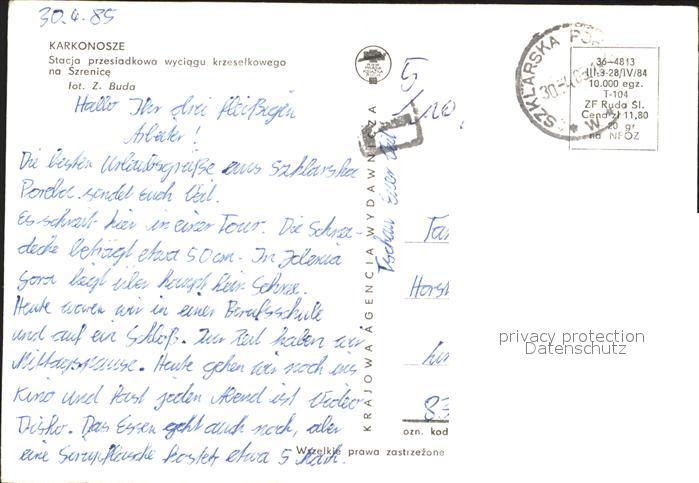 30.4.85
KARKONOSZE
Stacja przesiadkowa wyciągu krzesełkowego
na Szrenicę
fot. Z. Buda
Hallo Ihr drei fleißigen
Arbeiter!
Die besten Urlaubsgrüße aus Szklarska
Poreba sendet Euch
Es schneit hier in einer Tour. Die Schnee-
decke beträgt etwa 50cm. In Jelenia
Gora liegt überhaupt kein Schnee.
Heute waren wir in einer Berufsschule
und auf ein Schloß. Zur Zeit haben wir
Mittagspause. Heute gehen wir noch ins
Kino und fast jeden Abend ist Video
Disko. Das Essen geht auch noch, aber
eine Flasche kostet etwa 5 Mark.
Tschau Euer
KRAJOWA AGENCJA WYDAWNICZA
5/10.
SZKLARSKA POR
30.-4.85
W
36-4813
III-3-28/IV/84
10.000 egz.
T-104
ZF Ruda Śl.
Cena zł 11,80
20 gr
na NFOZ
Horst
privacy protection
Datenschutz
ozn. kod
Wszelkie prawa zastrzeżone